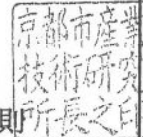 京都市産業
技術研究
所長之印
則